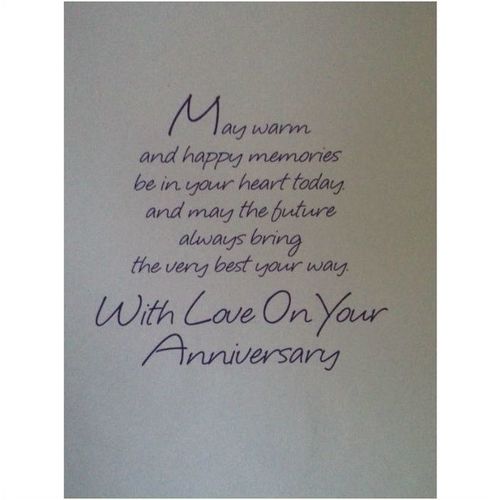 May warm
and happy memories
be in your heart today.
and may the future
always bring
the very best your way.
With Love On Your
Anniversary